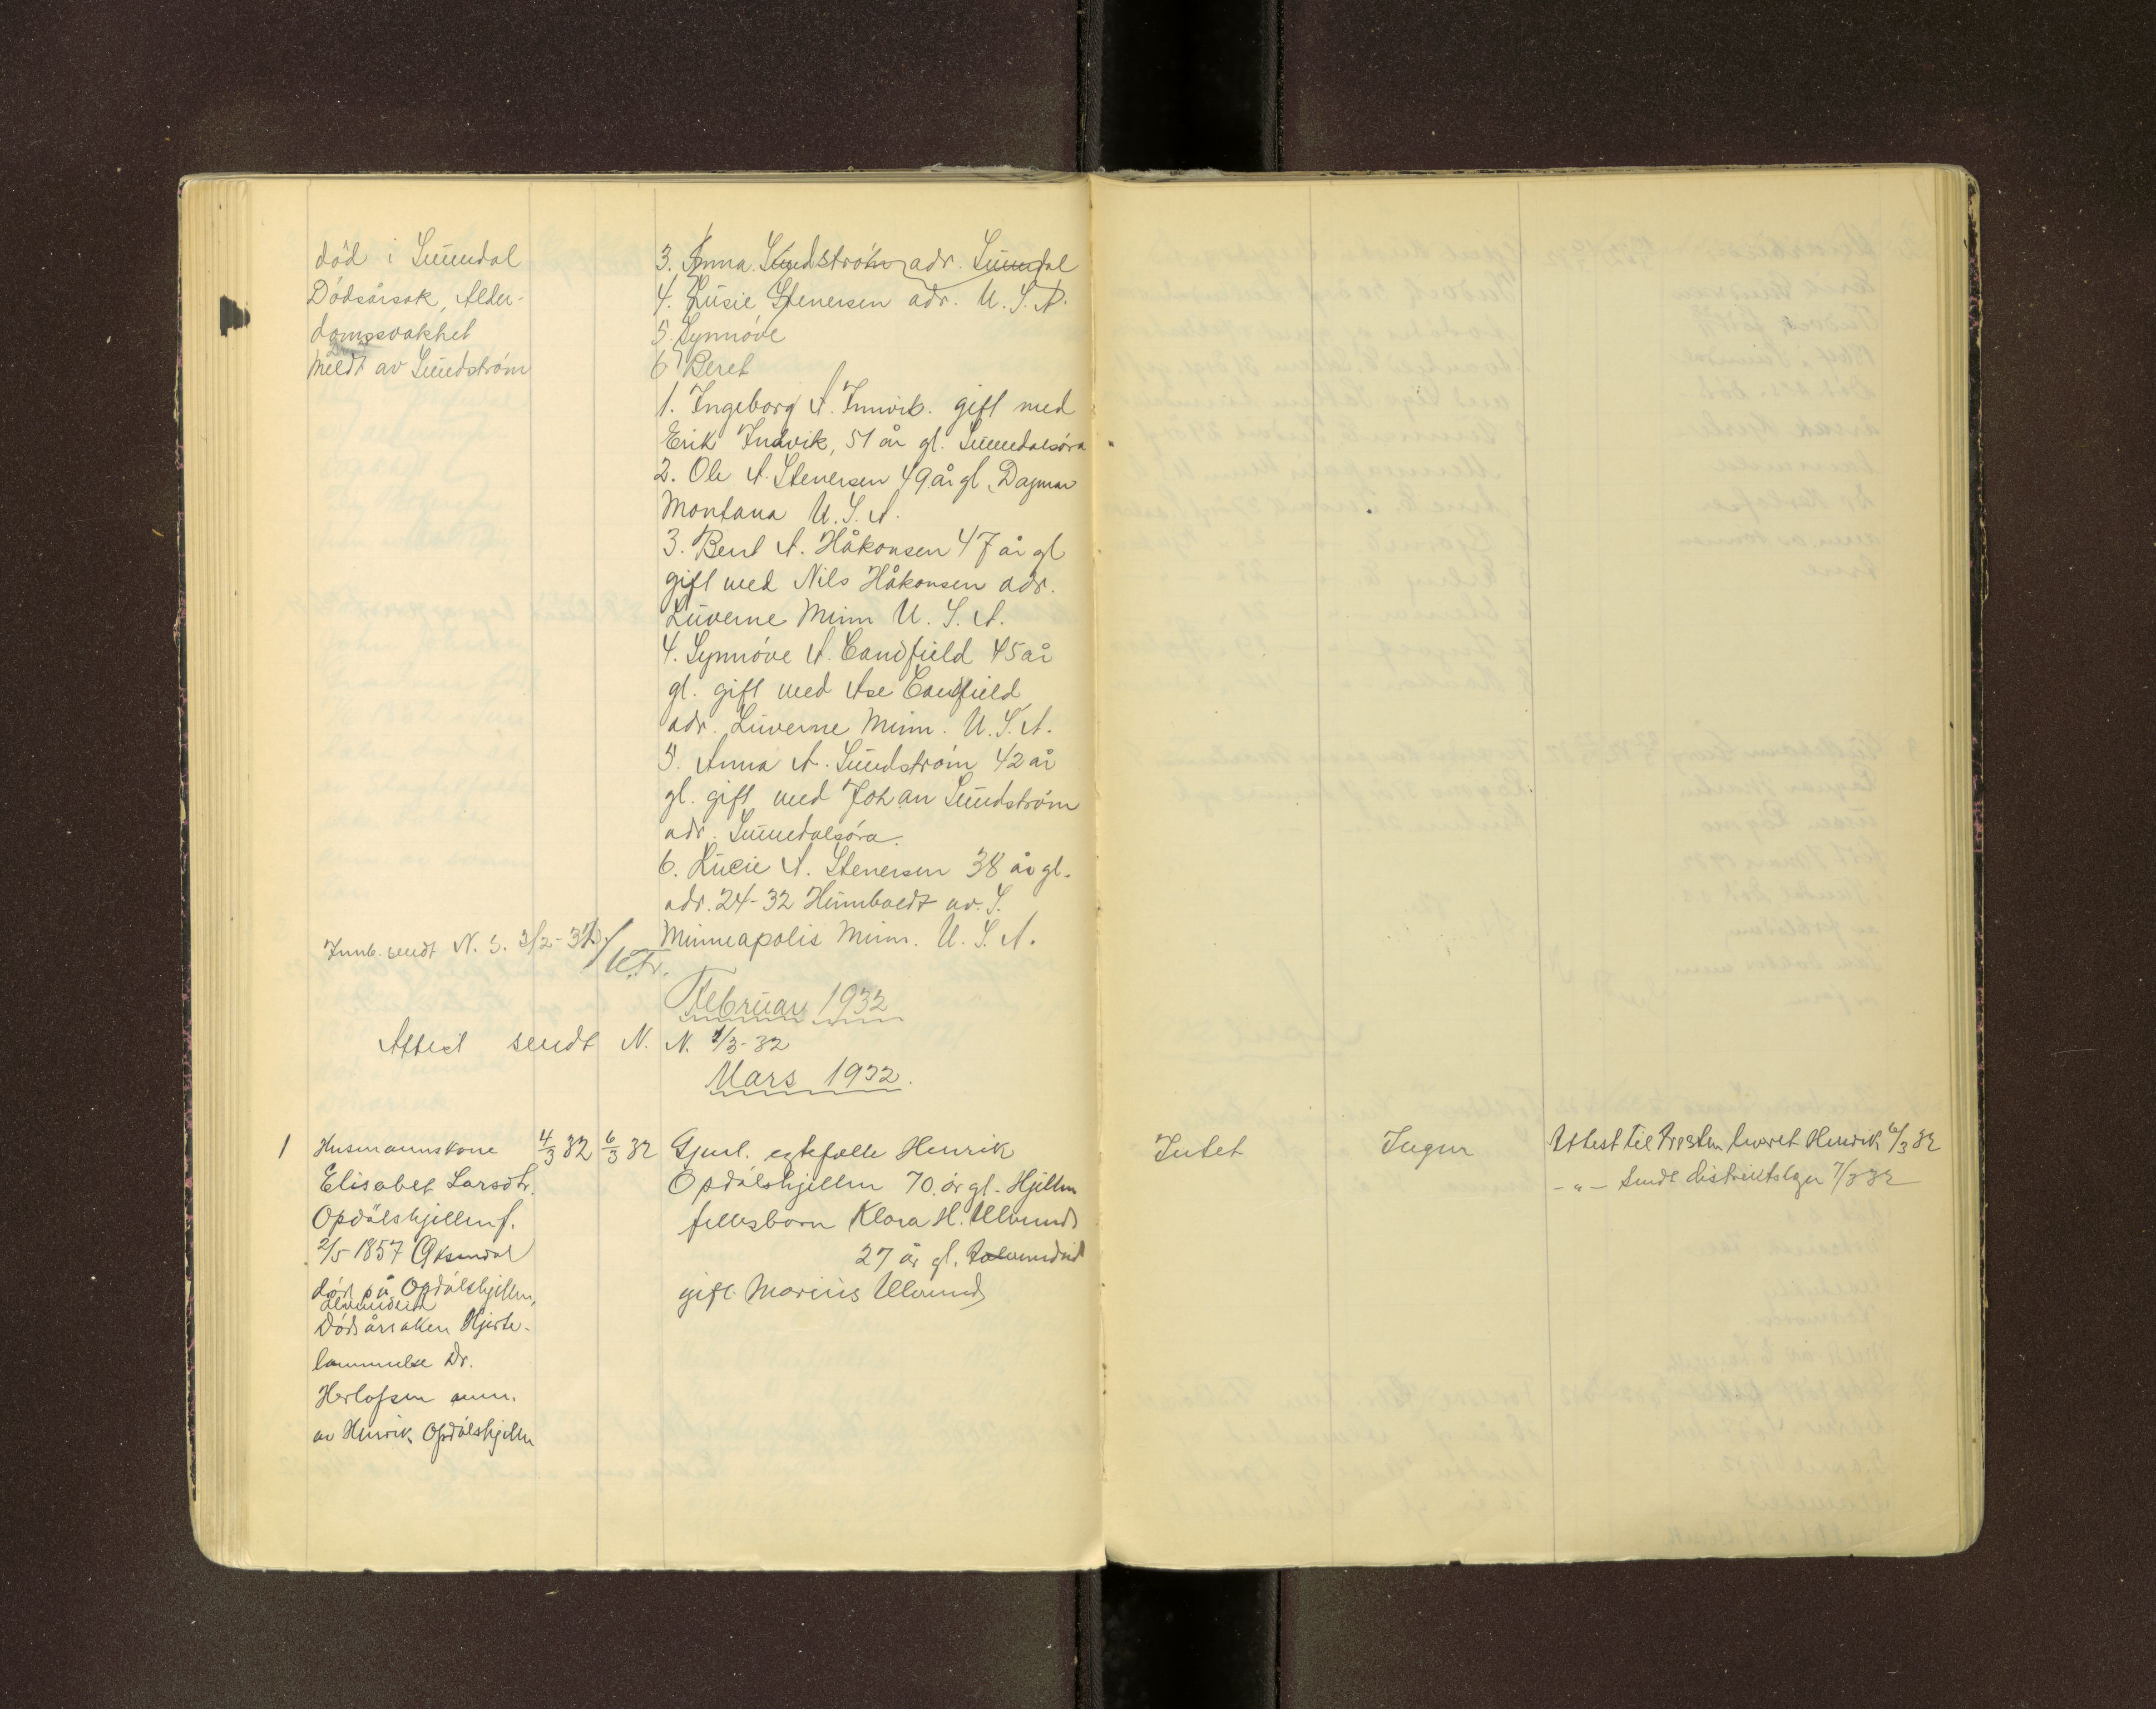 død i Sunndal
Dødsårsak, Alder-
domssvakhet
Meldt av Sundstrøm
3. Anna Sundstrøm adr. Sunndal
4. Lusie Stenersen adr. U. S. A.
5. Synnøve
6. Beret
1. Ingeborg A. Innvik. gift med
Erik Innvik, 51 år gl. Sunndalsøra
2. Ole A. Stenersen 49 år gl. Dagmar
Montana U. S. A.
3. Beret A. Håkonsen 47 år gl
gift med Nils Håkonsen adr.
Luverne Minn U. S. A.
4. Synnøve A. Candfield 45 år
gl. gift med Ase Candfield
adr. Luverne Minn. U. S. A.
5. Anna A. Sundstrøm 42 år
gl. gift med Johan Sundstrøm
adr. Sunndalsøra.
6. Lucie A. Stenersen 38 år gl.
adr. 24-32 Humboldt av. S.
Minneapolis Minn. U. S. A.
Innb. sendt N. S. 3/2-32
Februar 1932
Attest sendt N. N. 1/3-32
Mars 1932.
1 Husmannskone 4/3 32 6/3 32
Elisabet Larsdtr.
Opdølshjellen f.
2/5 1857 Øksendal
død på Opdølshjellen,
Ålvundeid
Dødsårsaken Hjerte-
lammelse Dr.
Herlofsen anm.
av Henrik Opdølshjellen
Gjenl. egtefelle Henrik
Opdølshjellen 70 år gl. Hjellen
fellesbarn Klara H. Ulvund
27 år gl. Ålvundeid
gift Marius Ulvund
Intet
Ingen
Attest til Presten levert Henrik 6/3 32
- " - Sendt distriktslegen 7/3 32